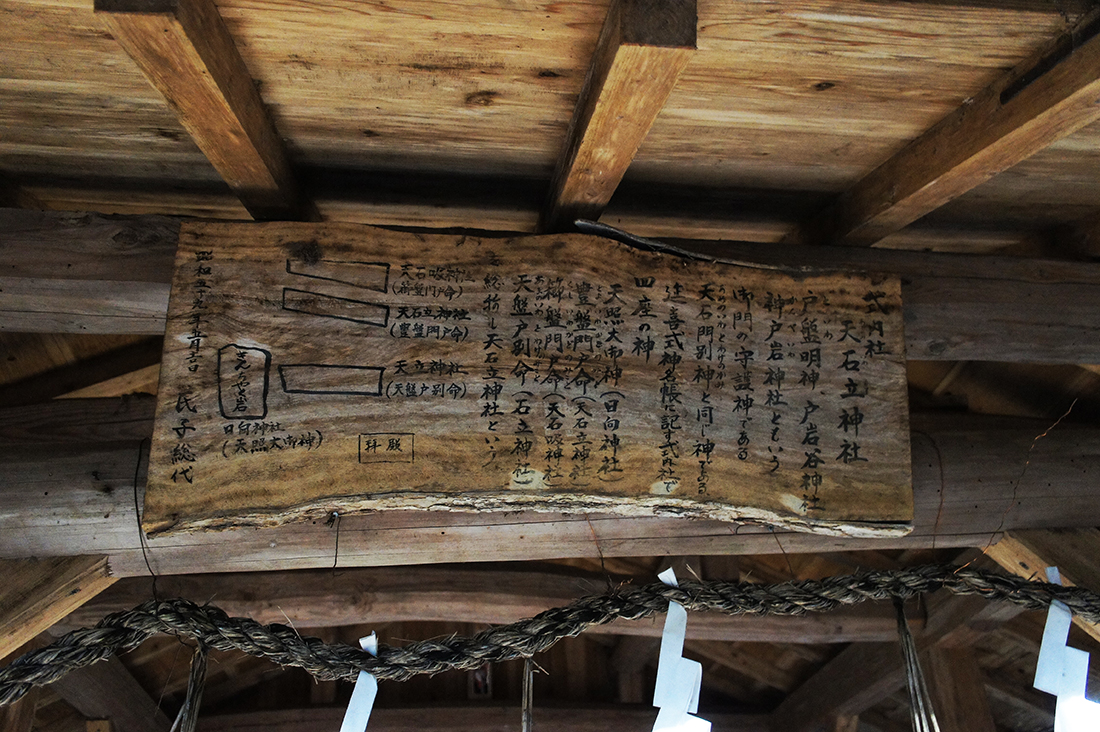 式内社
天石立神社
戸盤明神、戸岩谷神社
神戸岩神社ともいう
御門の守護神である
天石門別神と同じ神である
延喜式神名帳に記す式内社で
四座の神
天照大御神(日向神社)
豊盤門戸命(天石立神社)
櫛盤門戸命(天石吸神社)
天盤戸別命(石立神社)
を総称し天石立神社という
天石吸神社
天石立神社
(豊盤門戸命)
天立神社
(天盤戸別命)
拝殿
日向神社
(天照大御神)
氏子総代